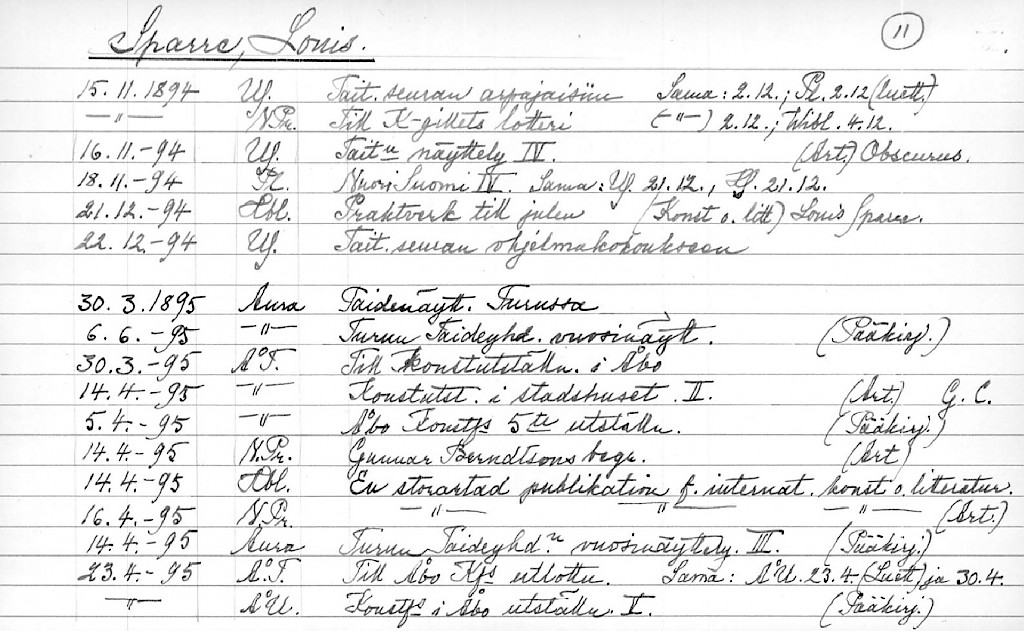 Sparre, Louis. 11
15.11.1894 Us. Tait. seuran arpajaisiin Sama: 2.12.; Pl. 2.12 (Luett.)
—"— N.Pr. Till K-gillets lotteri (—"—) 2.12.; Wibl. 4.12.
16.11.-94 Us. Tait:n näyttely IV. (Art.) Obscurus.
18.11.-94 Pl. Nuori Suomi IV. Sama: Us. 21.12., 21.12.
21.12.-94 Hbl. Praktverk till julen (Konst o. litt) Louis Sparre.
22.12.-94 Us. Tait. seuran ohjelmakokoukseen
30.3.1895 Aura Taidenäytt. Turussa
6.6.-95 —"— Turun Taideyhd. vuosinäytt. (Pääkirj.)
30.3.-95 Å.T. Till konstutställn. i Åbo
14.4.-95 —"— Konstutst. i stadshuset. II. (Art.) G. C.
5.4.-95 —"— Åbo Konstfs 5te utställn. (Pääkirj.)
14.4.-95 N.Pr. Gunnar Berndtsons begr. (Art)
14.4.-95 Hbl. En storartad publikation f. internat. konst o. litteratur.
16.4.-95 N.Pr. —"— —"— —"— (Art.)
14.4.-95 Aura Turun Taideyhd:n vuosinäyttely. III. (Pääkirj.)
23.4.-95 Å.T. Till Åbo Kfs utlottn. Sama: Å.U. 23.4. (Luett) ja 30.4.
—"— Å.U. Konstfs i Åbo utställn. I. (Pääkirj.)